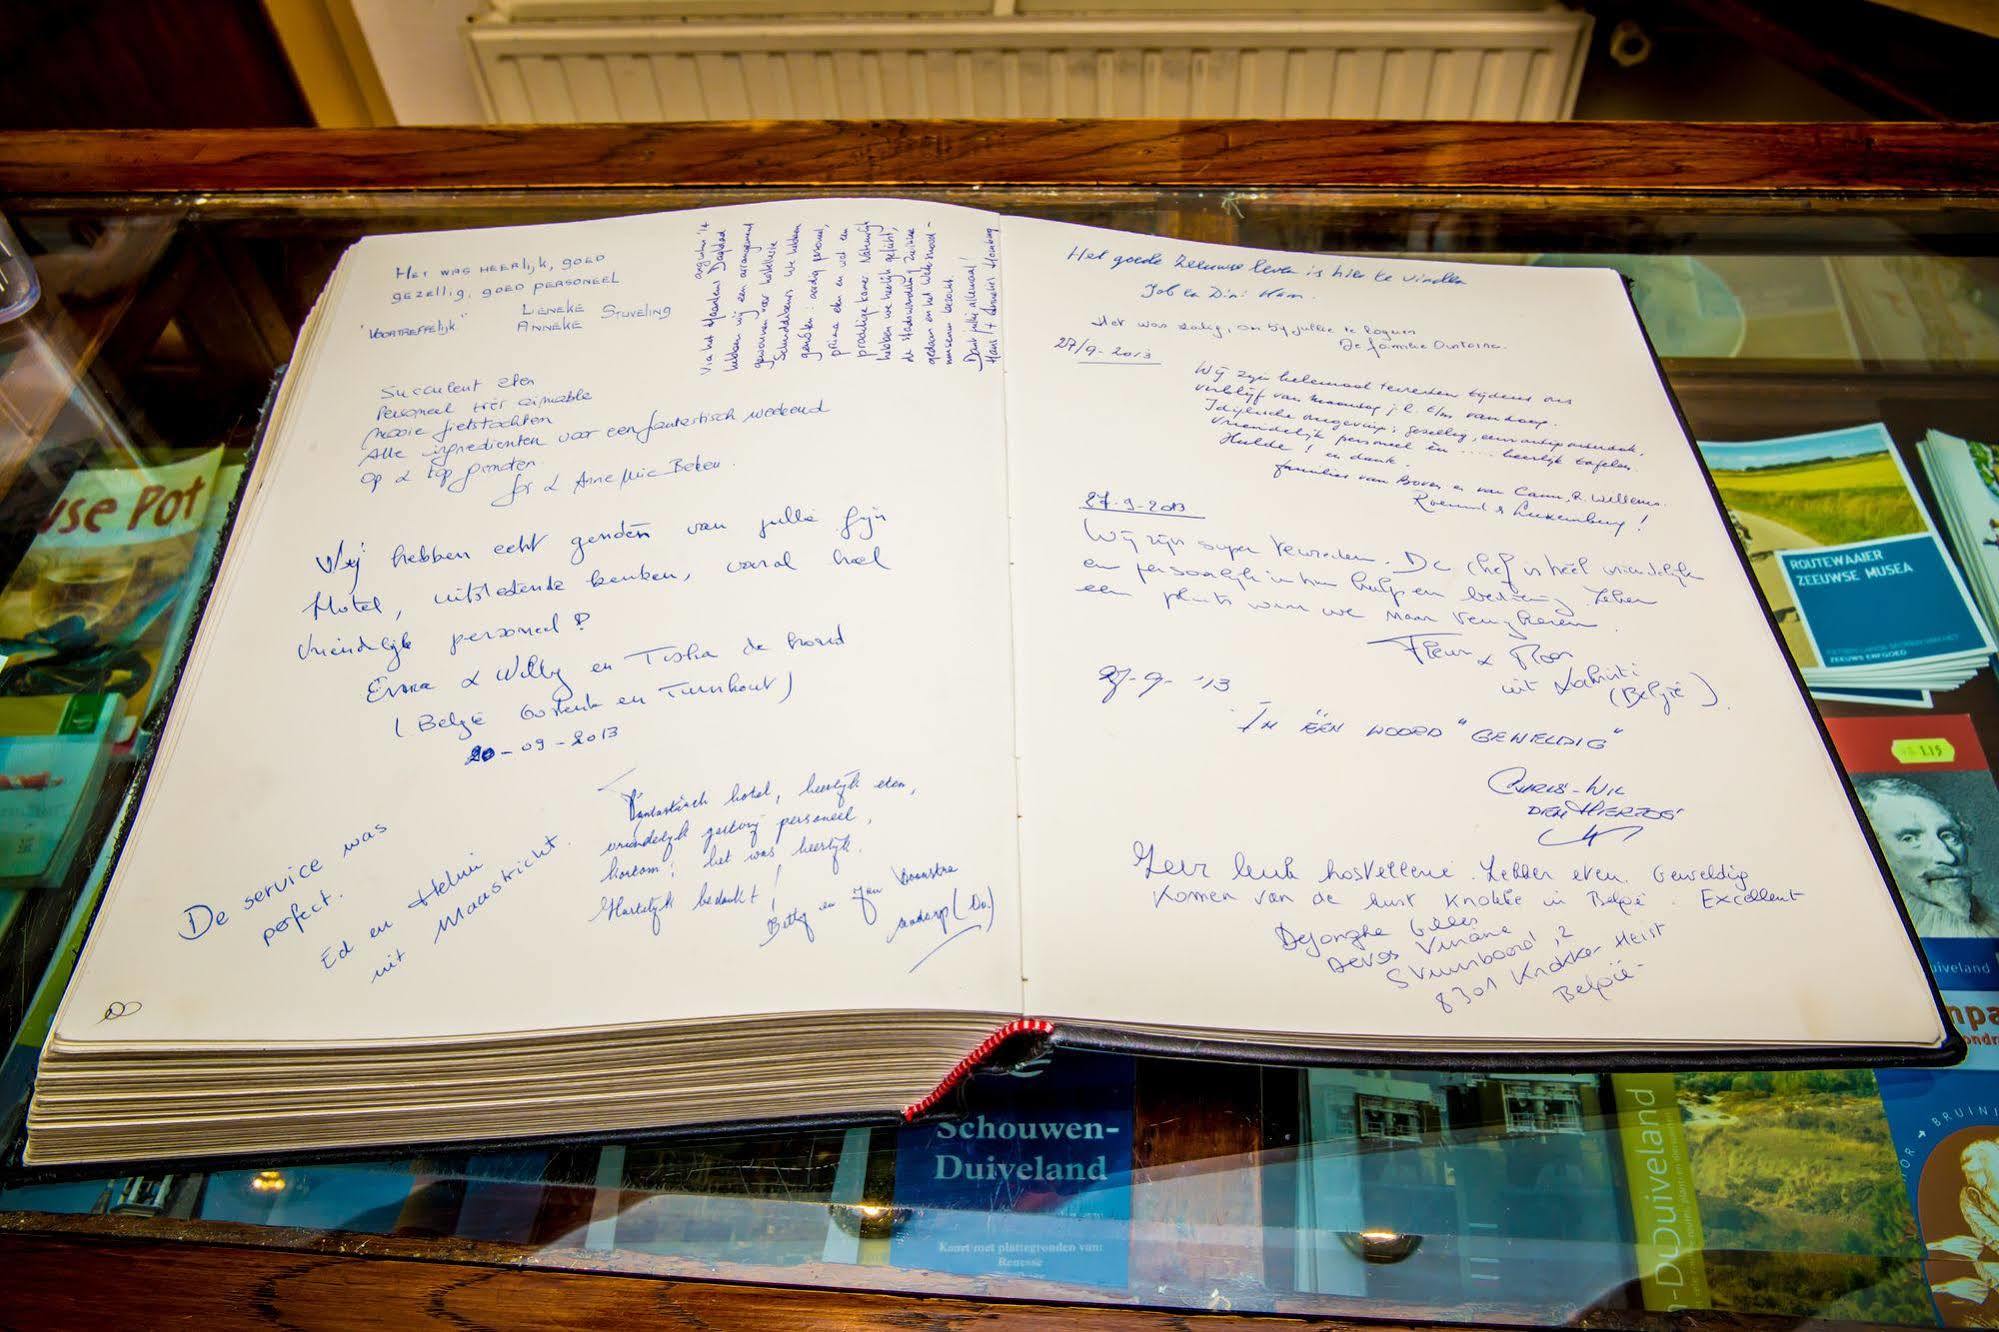 HET WAS HEERLIJK, GOED
GEZELLIG, GOED PERSONEEL
LIENEKE STUVELING
"VOORTREFFELIJK" ANNEKE
augustus '14
Via het Haarlems Dagblad
hebben wij een arrangement
gewonnen voor hostellerie
Schuddebeurs. We hebben
genoten: aardig personeel,
prima eten en wel een
prachtige kamer. Natuurlijk
hebben we heerlijk gefietst,
de stadswandeling Zierikzee
gedaan en het Watersnood-
museum bezocht.
Dank jullie allemaal!
Hans +
Succulent eten
Personeel très aimable
Mooie fietstochten
Alle ingrediënten voor een fantastisch weekend
Op & top genoten.
Jos & AnneMie Beken.
Wij hebben echt genoten van jullie fijn
Hotel, uitstekende keuken, vooral heel
vriendelijk personeel!
Erna & Willy en Tisha de hond
(België Oostende en Turnhout)
20-09-2013
De service was
perfect.
Ed en Helmi
uit Maastricht.
Fantastisch hotel, heerlijk eten,
vriendelijk gastvrij personeel,
kortom: het was heerlijk.
Hartelijk bedankt!
Betty en Jan
(Dr.)
Het goede Zeeuwse leven is hier te vinden
Job en Dini Ham.
Het was zalig, om bij jullie te logeren
De familie
27/9-2013
Wij zijn helemaal tevreden tijdens ons
verblijf van maandag j.l. t/m vandaag.
Idyllische omgeving; gezellig, eenvoudig onderdak,
vriendelijk personeel èn .... heerlijk tafelen.
Hulde! en dank.
families van Boven en van Cann, R. Willems.
Roermond & Luxemburg!
27-9-2013
Wij zijn super tevreden. De chef is héél vriendelijk
en persoonlijk in hun hulp en bediening. Zeker
een plaats waar we naar terugkeren.
Fleur & Roos
uit
(België).
27-9-'13
IN ÉÉN WOORD "GEWELDIG"
CHRIS-WIL
DEN HERTOG
Zeer leuk hostellerie. Lekker eten. Geweldig
Komen van de kust Knokke in België. Excellent
Dejonghe Gilles
Devos Viviane
,2
8301 Knokke Heist
België-
use Pot
ROUTEWAAIER
ZEEUWSE MUSEA
ZEEUWS ERFGOED
1.15
uiveland
Schouwen-
Duiveland
Kaart met plattegronden van:
Renesse
n-Duiveland
BRUINI